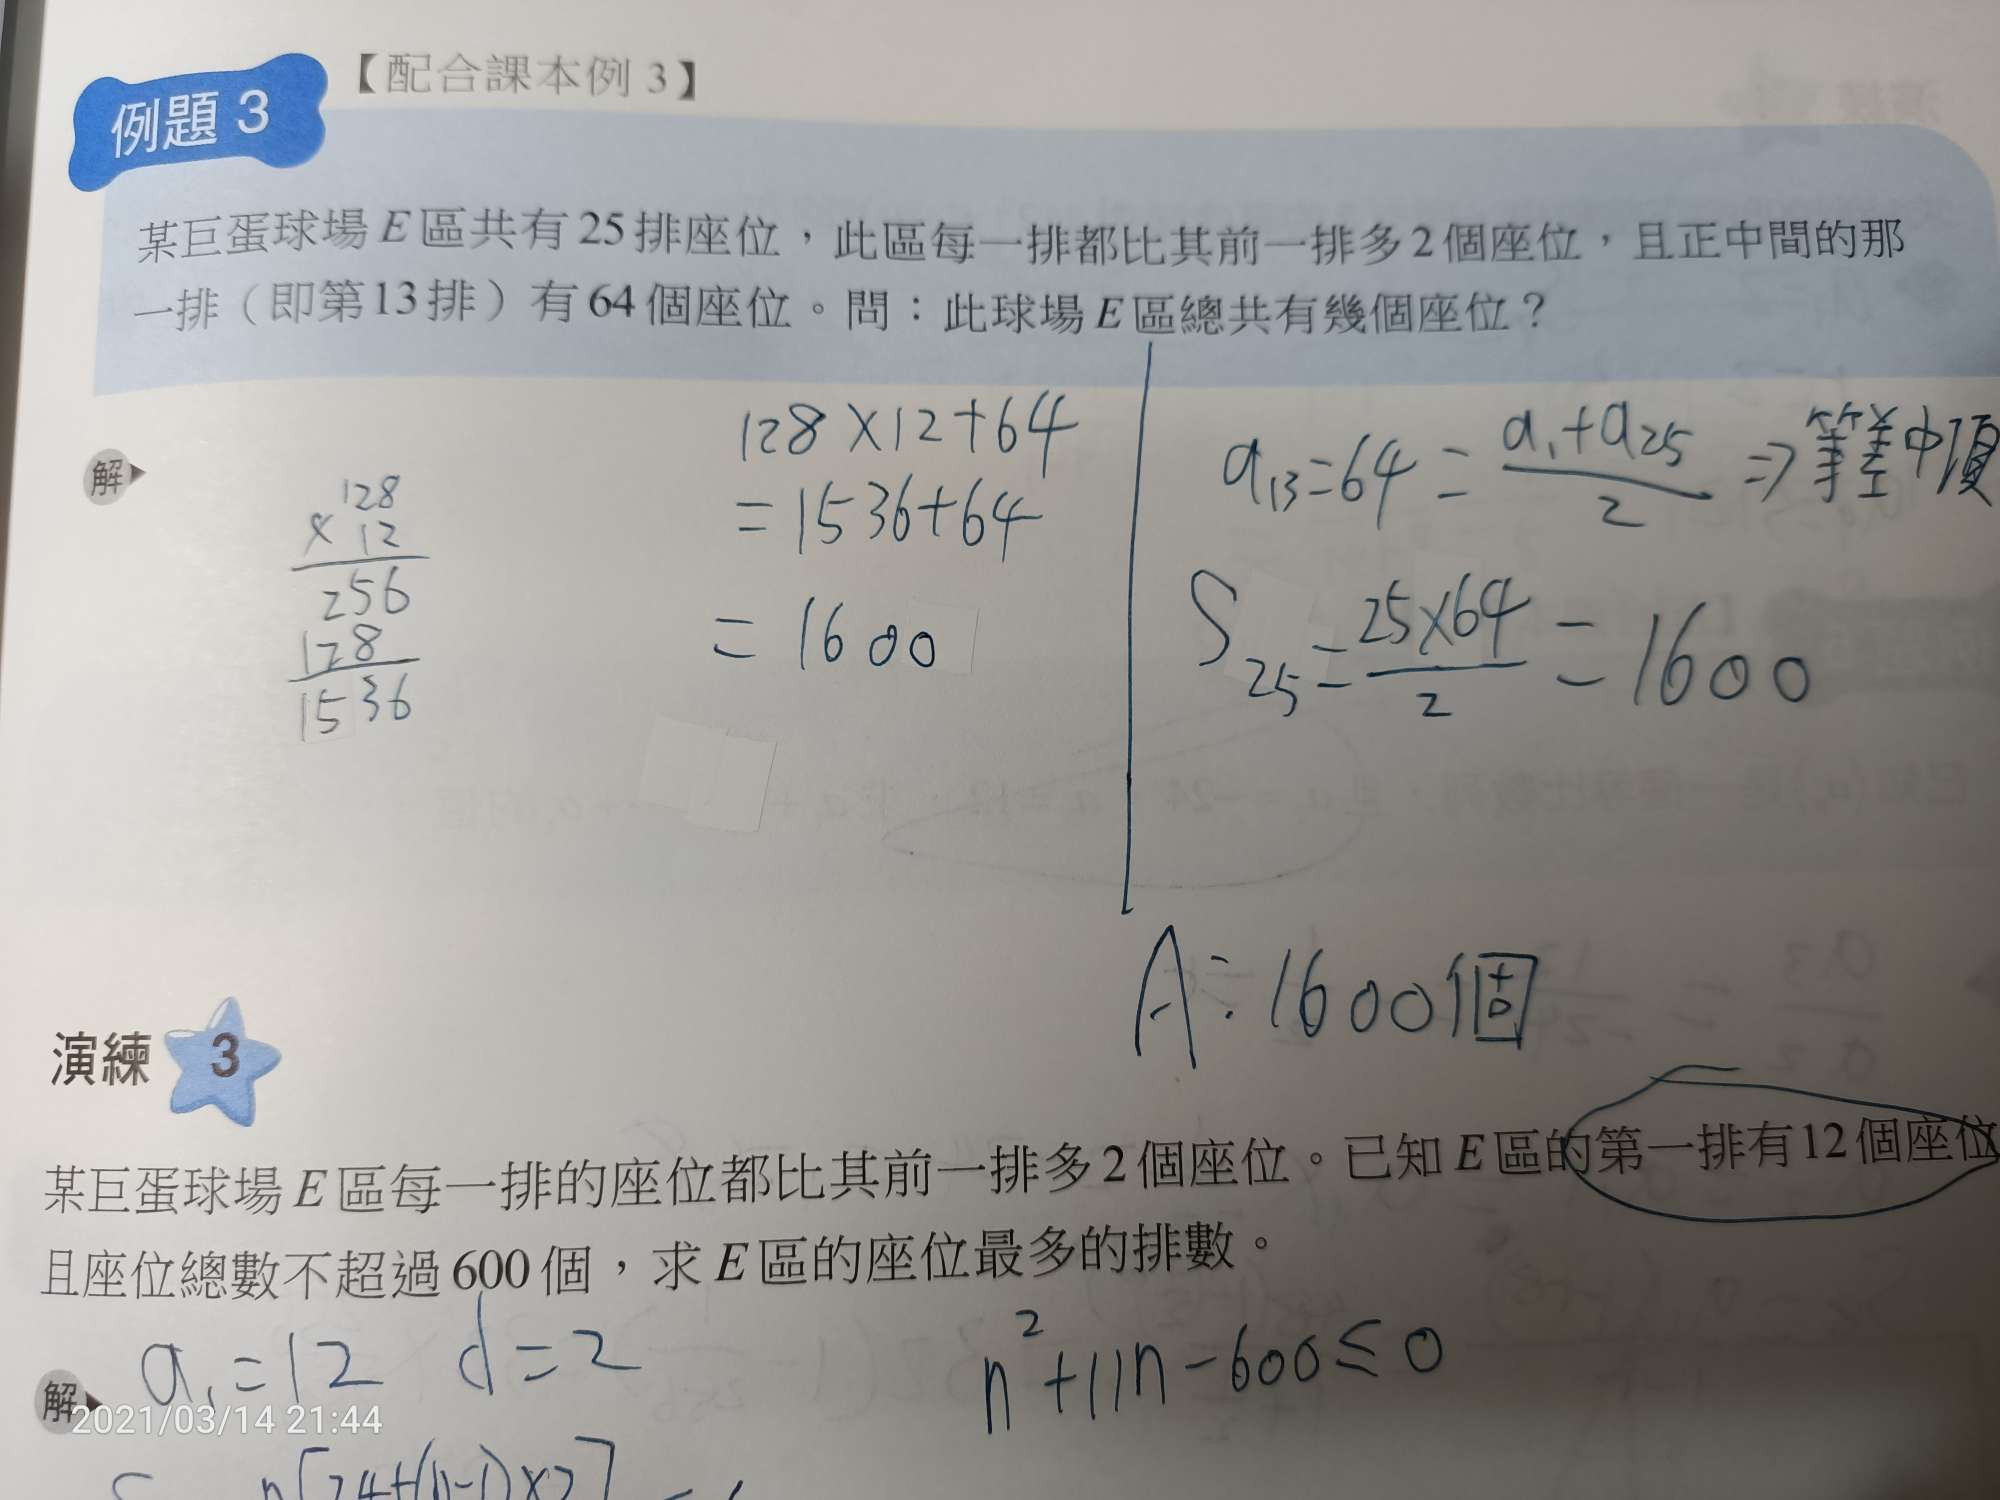 例題 3
【配合課本例 3】
某巨蛋球場 E 區共有 25 排座位，此區每一排都比其前一排多 2 個座位，且正中間的那
一排（即第 13 排）有 64 個座位。問：此球場 E 區總共有幾個座位？
解
128
× 12
256
128
1536
128×12+64
=1536+64
=1600
a₁₃=64=\frac{a₁+a₂₅}{2}⇒等差中項
S₂₅=\frac{25×64}{2}=1600
A：1600個
演練 3
某巨蛋球場 E 區每一排的座位都比其前一排多 2 個座位。已知 E 區的第一排有 12 個座位
且座位總數不超過 600 個，求 E 區的座位最多的排數。
解
a₁=12 d=2
n²+11n-600≤0
2021/03/14 21:44
n[24+(n-1)×2]